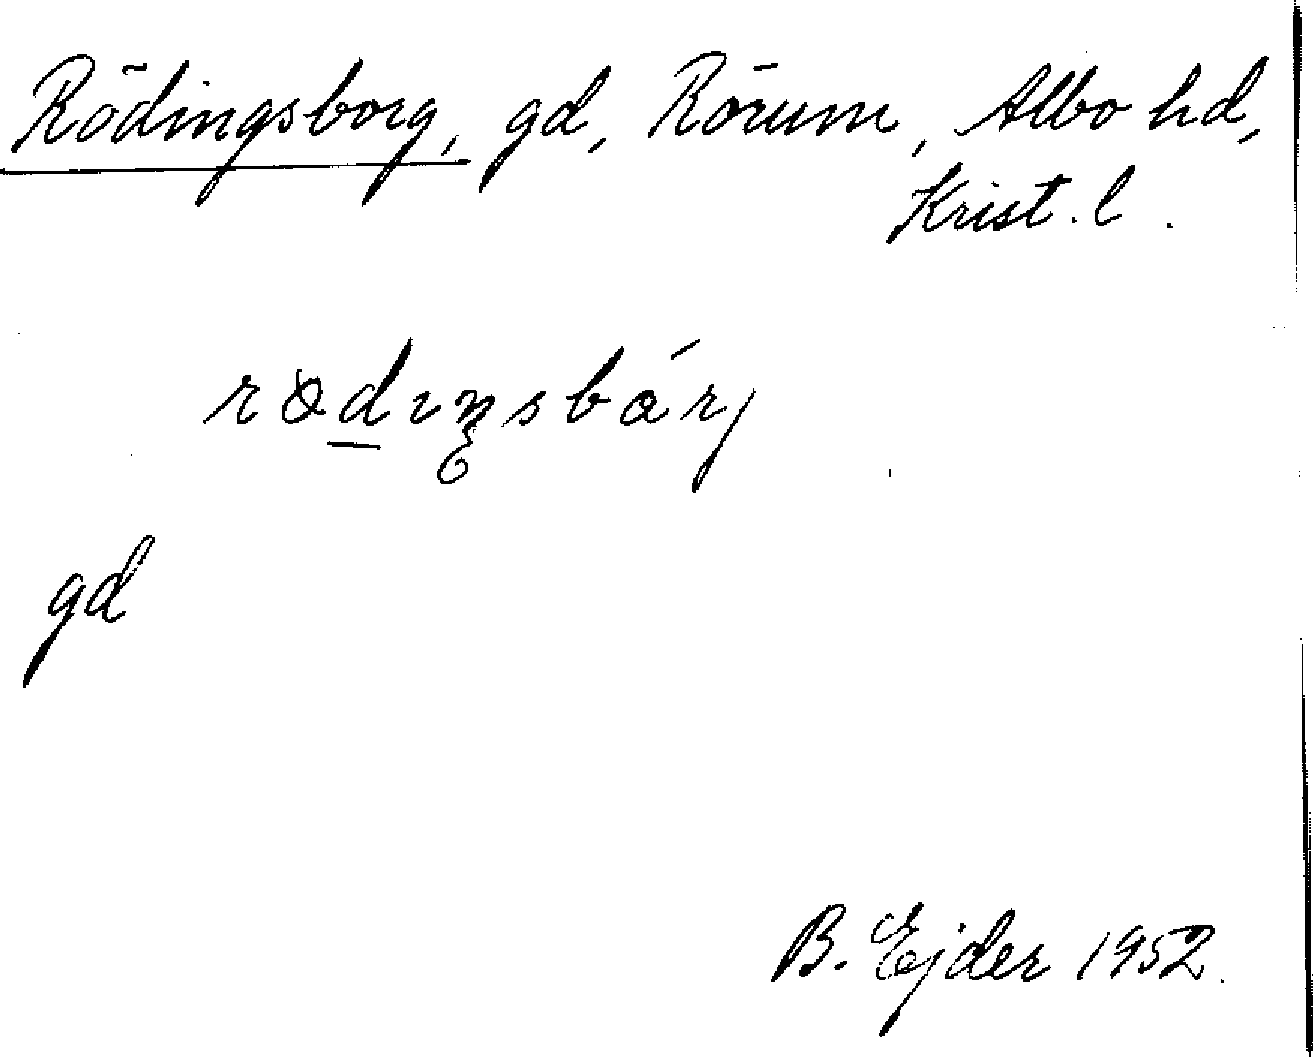 Rödingsborg, gd, Rörum, Albo hd,
Krist. l.
rødıŋsbárj
gd
B. Ejder 1952.